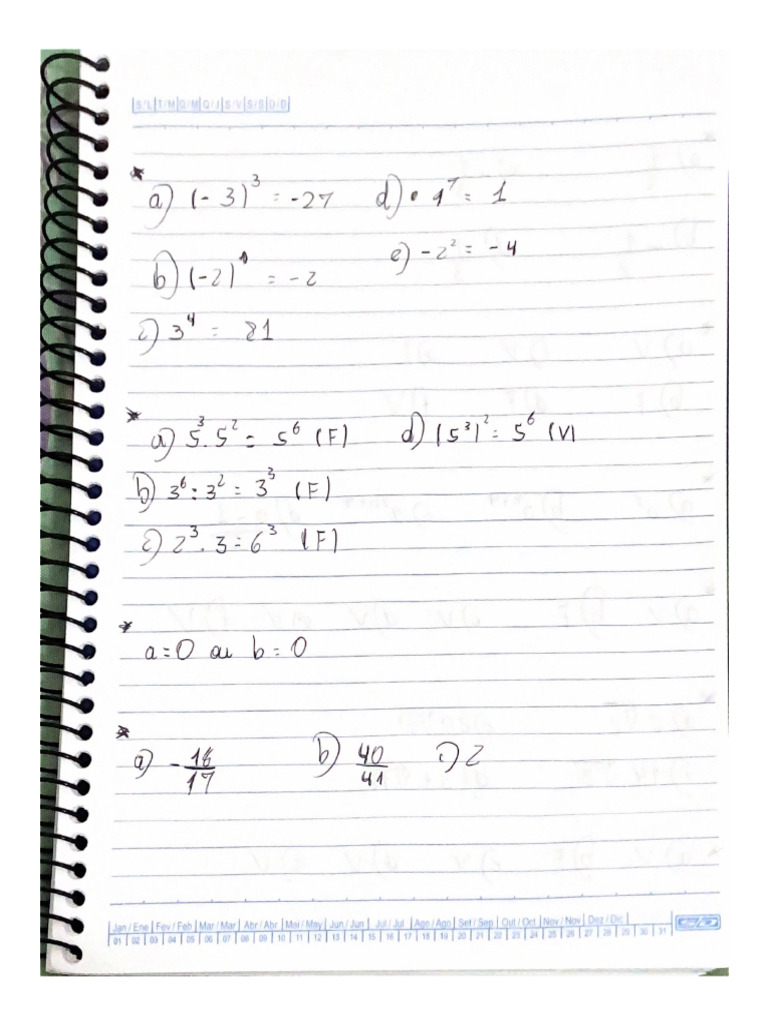 S/L T/M Q/M Q/J S/V S/S D/D
*
a) (-3)³ = -27 d) • 1⁷ = 1
b) (-2)¹ = -2 e) -2² = -4
c) 3⁴ = 81
*
a) 5³.5² = 5⁶ (F) d) (5³)² = 5⁶ (V)
b) 3⁶ : 3² = 3³ (F)
c) 2³ . 3 = 6³ (F)
*
a = 0 ou b = 0
*
a) -16/17 b) 40/41 c) 2
Jan / Ene Fev / Feb Mar / Mar Abr / Abr Mai / May Jun / Jun Jul / Jul Ago / Ago Set / Sep Out / Oct Nov / Nov Dez / Dic
01 02 03 04 05 06 07 08 09 10 11 12 13 14 15 16 17 18 19 20 21 22 23 24 25 26 27 28 29 30 31